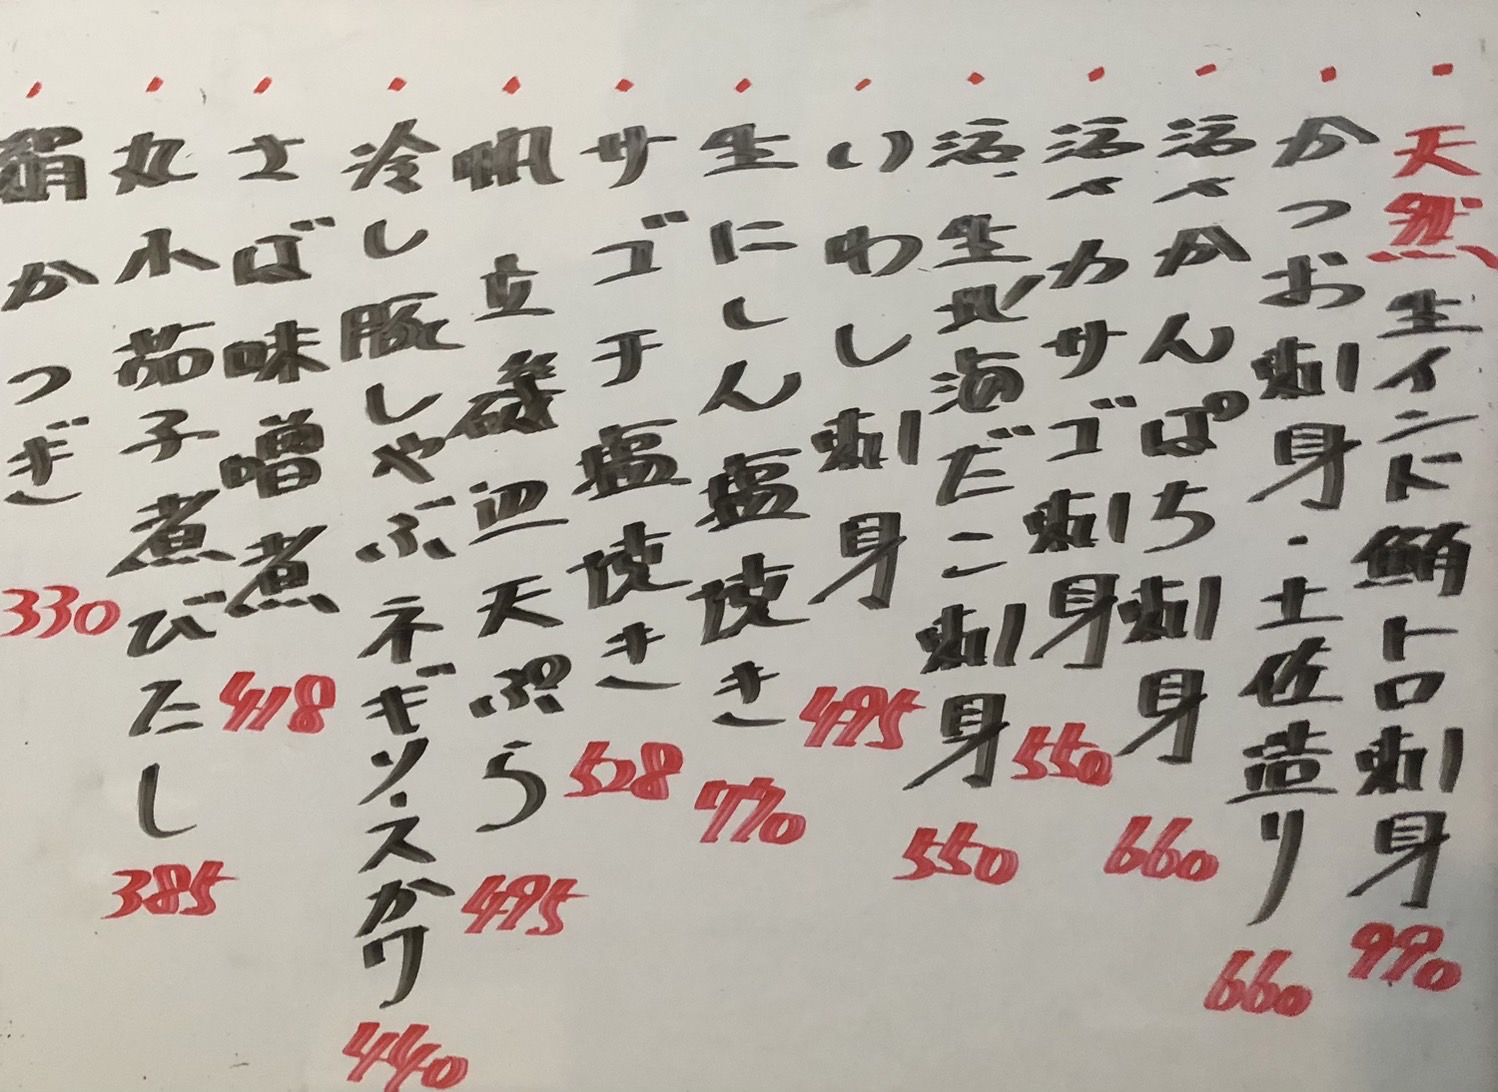 ・天然生インド鮪トロ刺身 990
・かつお刺身・土佐造り 660
・活〆かんぱち刺身 660
・活〆カサゴ刺身 550
・活、生北海だこ刺身 550
・いわし刺身 495
・生にしん塩焼き 770
・サゴチ塩焼き 528
・帆立磯辺天ぷら 495
・冷し豚しやぶネギソ・スかワ 440
・さば味噌煮 418
・丸小茄子煮びたし 385
・絹かつぎ 330